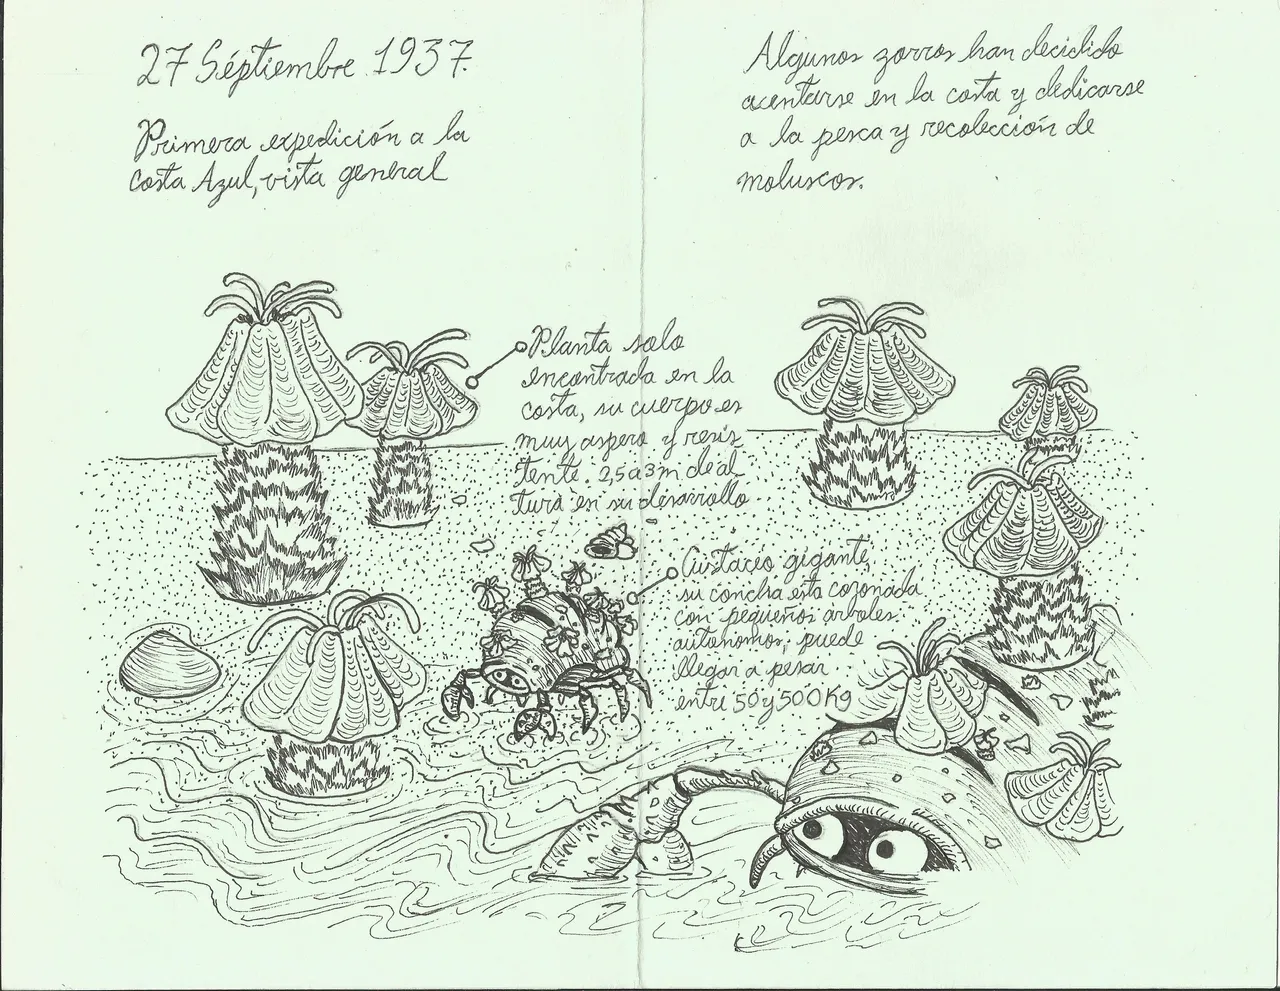 27 Séptiembre 1937.
Primera expedición a la
costa Azul, vista general
Algunos zorros han decidido
acentarse en la costa y dedicarse
a la pesca y recolección de
moluscos.
Planta solo
encontrada en la
costa, su cuerpo es
muy aspero y resis
tente. 2,5 a 3 m de al
tura en su desarrollo
Custaceo gigante,
su concha esta coronada
con pequeños arvoles
autonomos, puede
llegar a pesar
entre 50 y 500 Kg